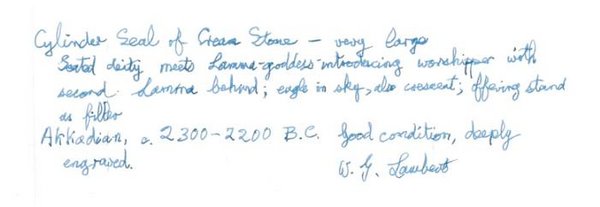 Cylinder Seal of Cream Stone – very large
Seated deity meets Lamma-goddess introducing worshipper with
second Lamma behind; eagle in sky, also crescent; offering stand
as filler
Akkadian, c. 2300-2200 B.C. Good condition, deeply
engraved. W. G. Lambert